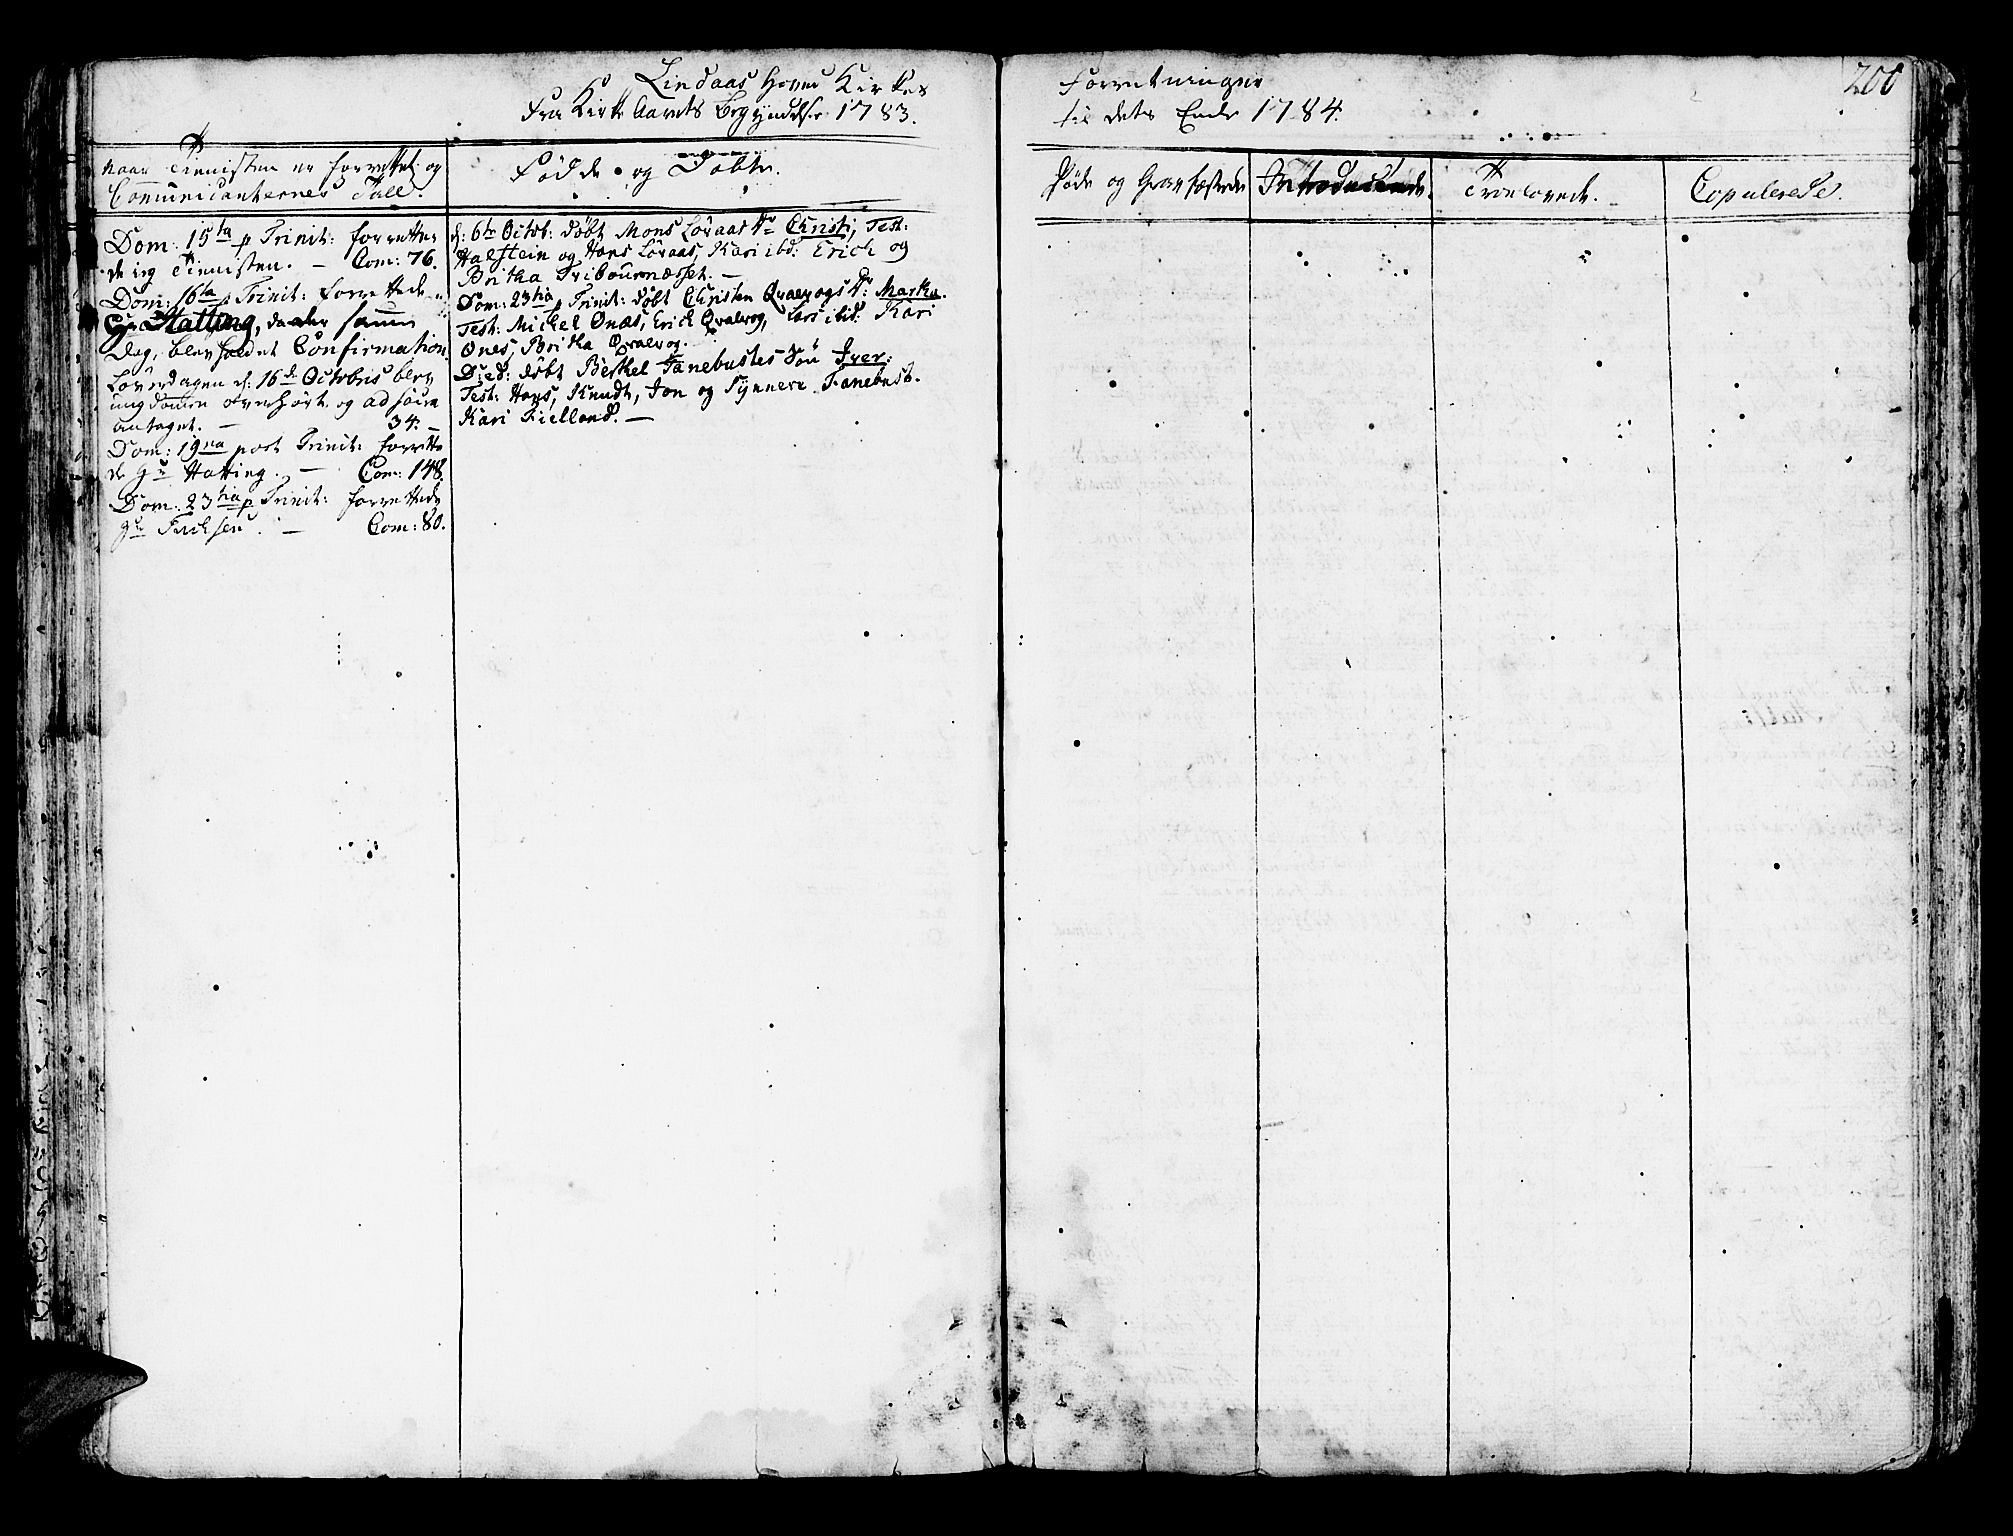 Lindaas Hoved Kirkes
Fra Kirke Aarets Begyndelse 1783.
Forretninger
til dets Ende 1784.
200
Naar Tienisten er forrettet og
Communicanternes Tall.
Fødde og Døbte.
Døde og Gravfæstede
Introducerede.
Trolovede.
Copulerede.
Dom: 15ta p Trinit: forrette
de ieg Tienisten. — Com: 76.
Dom: 16ta p Trinit: forrettede
Hr Hatting, da der samme
Dag, blev holdet Confirmation.
Løverdagen d: 16d Octobris blev
ungdommen overhørt og ad
antaget. — 34. —
Dom: 19na post Trinit: forrette
de Hr Hatting. — Com: 148.
Dom: 23tia p Trinit: forrettede
Hr Erichsen. — Com: 80.
d: 6te Octob: døbt Mons Løraas Dr Christi, Test:
Halstein og Hans Løraas, Kari ibd: Erich og
Britha
Dom: 23tia p Trinit: døbt Christen Qvalvogs Dr: Marta.
Test: Michel Ones, Erich Qvalvog, Lars ibid: Kari
Ones, Britha Qvalvog.
Died: døbt Berthel Fanebustes Søn Iver:
Test: Hans, Knudt, Jon og Synneve Fanebust.
Kari Kielland. —